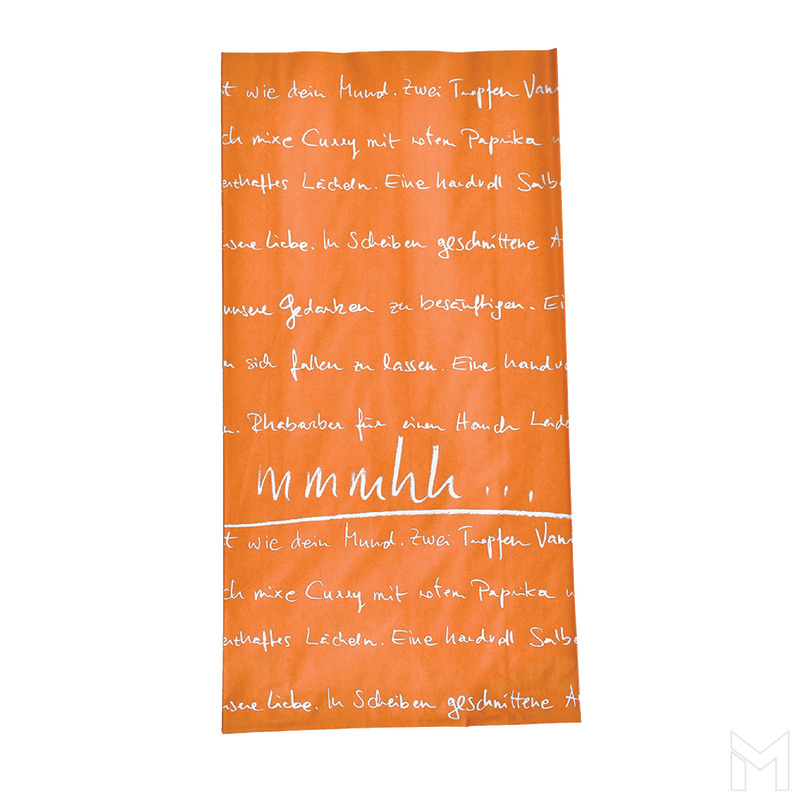 t wie dein Mund. Zwei Tropfen Van
ch mixe Curry mit rotem Paprika u
enthaftes Lächeln. Eine handvoll Salbe
nsere Liebe. In Scheiben geschnittene A
unsere Gedanken zu besänftigen. Ei
n sich fallen zu lassen. Eine handvo
n. Rhabarber für einen Hauch Leide
mmmhh...
t wie dein Mund. Zwei Tropfen Van
ch mixe Curry mit rotem Paprika u
enthaftes Lächeln. Eine handvoll Salbe
nsere Liebe. In Scheiben geschnittene A
M